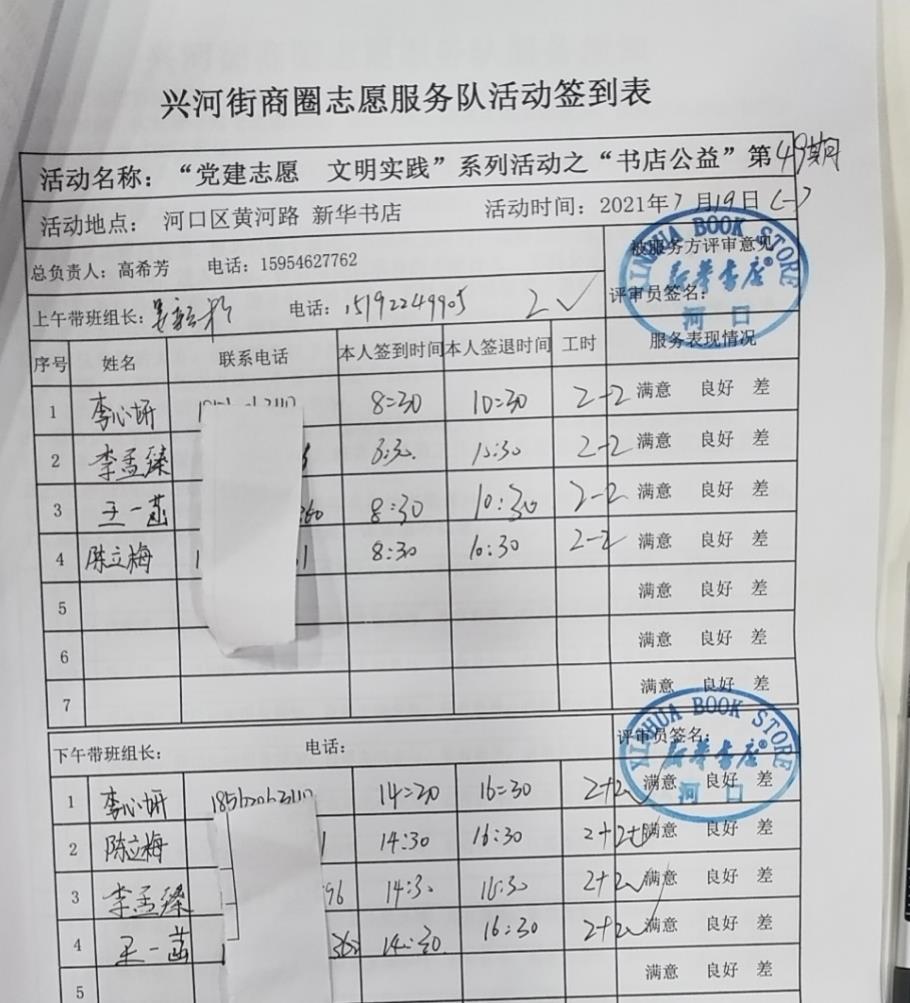 兴河街商圈志愿服务队活动签到表
活动名称：“党建志愿 文明实践”系列活动之“书店公益”第49期
活动地点： 河口区黄河路 新华书店 活动时间：2021年7月19日(一)
总负责人：高希芳 电话：15954627762 被服务方评审意见
上午带班组长： 电话：15192249905 2✓ 评审员签名：
XINHUA BOOK STORE
新华书店®
河口
序号 姓名 联系电话 本人签到时间 本人签退时间 工时 服务表现情况
1 李心妍 8=30 10=30 2-2 满意 良好 差
2 李孟臻 8:30. 10:30 2-2 满意 良好 差
3 王一菡 8:30 10:30 2-2 满意 良好 差
4 陈立梅 1 1 8:30 10:30 2-2 满意 良好 差
5 满意 良好 差
6 满意 良好 差
7 满意 良好 差
下午带班组长： 电话： 评审员签名：
XINHUA BOOK STORE
新华书店®
河口
1 李心妍 14=30 16=30 2+2 满意 良好 差
2 陈立梅 1 14:30 16:30 2+2 满意 良好 差
3 李孟臻 96 14:30 16:30 2+2 满意 良好 差
4 王一菡 14:30 16:30 2+2 满意 良好 差
5 满意 良好 差